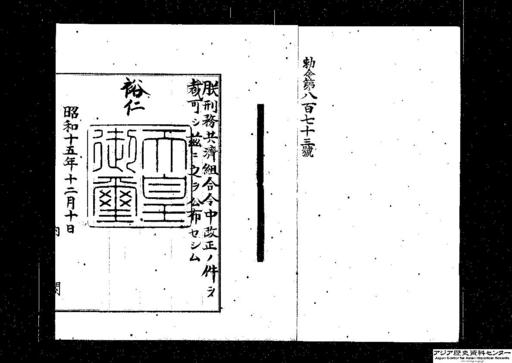 勅令第八百七十三號
朕刑務共濟組合令中改正ノ件ヲ
裁可シ茲ニ之ヲ公布セシム
裕仁
天皇
御璽
昭和十五年十二月十日
内閣
アジア歴史資料センター
Japan Center for Asian Historical Records